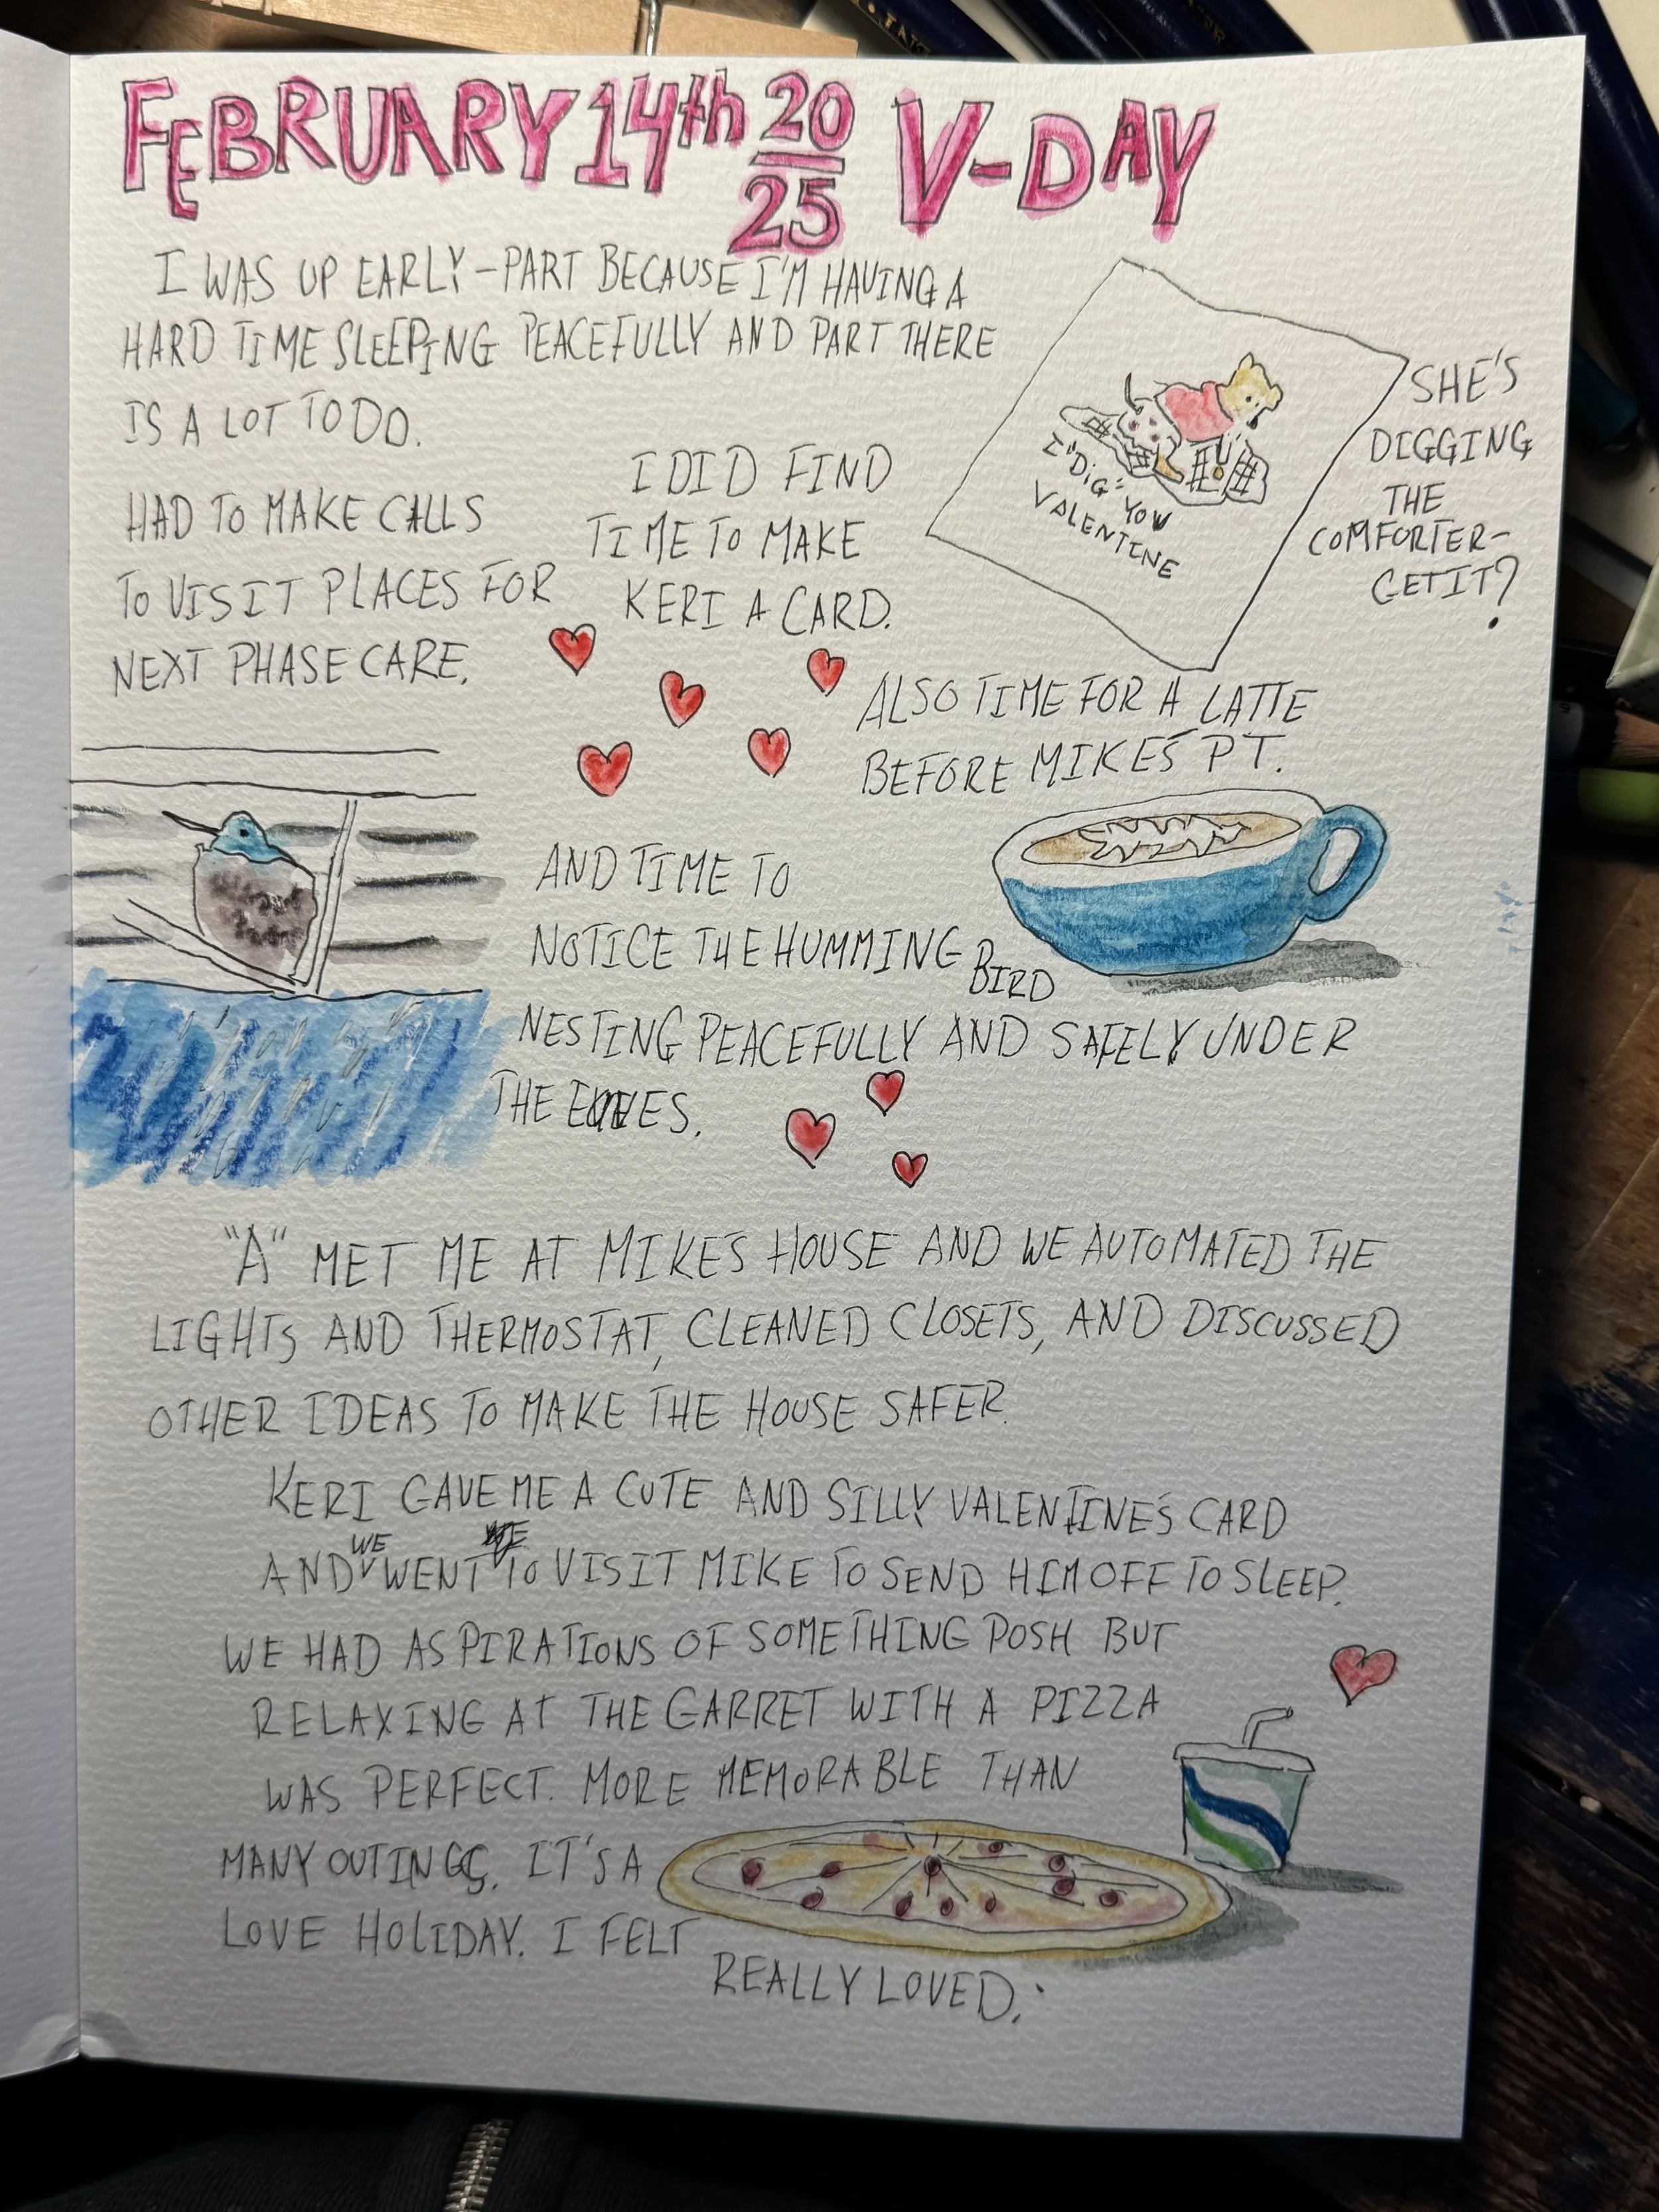 FEBRUARY 14th 2025 V-DAY
I WAS UP EARLY-PART BECAUSE I'M HAVING A
HARD TIME SLEEPING PEACEFULLY AND PART THERE
IS A LOT TO DO.
HAD TO MAKE CALLS
TO VISIT PLACES FOR
NEXT PHASE CARE.
I DID FIND
TIME TO MAKE
KERI A CARD.
I "DIG" YOU
VALENTINE
SHE'S
DIGGING
THE
COMFORTER-
GET IT?
ALSO TIME FOR A LATTE
BEFORE MIKE'S PT.
AND TIME TO
NOTICE THE HUMMING BIRD
NESTING PEACEFULLY AND SAFELY UNDER
THE EAVES.
"A" MET ME AT MIKE'S HOUSE AND WE AUTOMATED THE
LIGHTS AND THERMOSTAT, CLEANED CLOSETS, AND DISCUSSED
OTHER IDEAS TO MAKE THE HOUSE SAFER.
KERI GAVE ME A CUTE AND SILLY VALENTINE'S CARD
AND WE WENT TO VISIT MIKE TO SEND HIM OFF TO SLEEP.
WE HAD ASPIRATIONS OF SOMETHING POSH BUT
RELAXING AT THE GARRET WITH A PIZZA
WAS PERFECT. MORE MEMORABLE THAN
MANY OUTINGS. IT'S A
LOVE HOLIDAY. I FELT
REALLY LOVED.